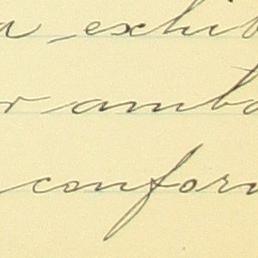 a exhib
r ambo
confor